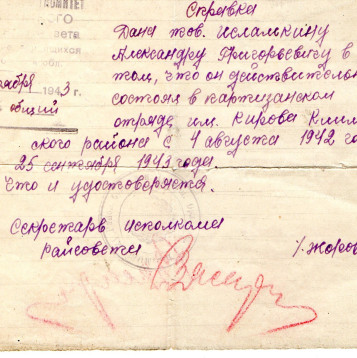 КОМИТЕТ
ГО
вета
щихся
обл.
1943
общий
Справка
Дана тов. Ислалкину
Александру Григорьевичу в
том, что он действительн
состоял в партизанском
отряде им. Кирова Клим
ского района с 4 августа 1942 го
25 сентября 1943 года
Что и удостоверяется.
Секретарь исполкома
райсовета